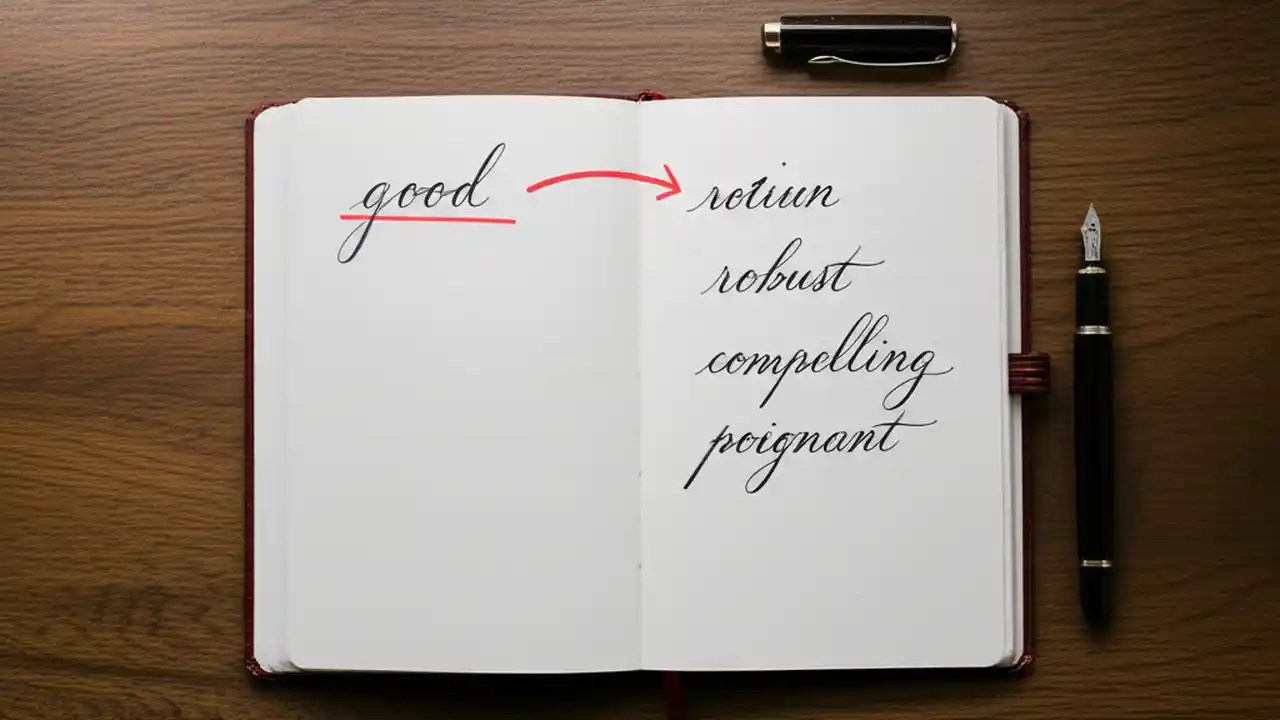 good
robust
compelling
poignant